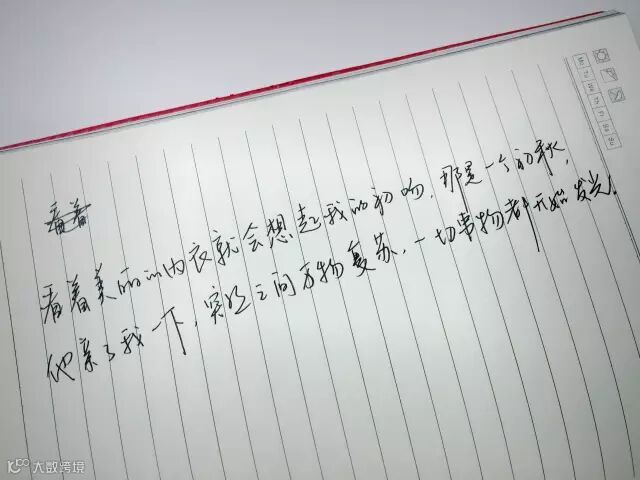 看着
看着美丽的内衣就会想起我的初吻，那是一个初秋，
他亲了我一下，突然之间万物复苏，一切事物都开始发光。
大数跨境